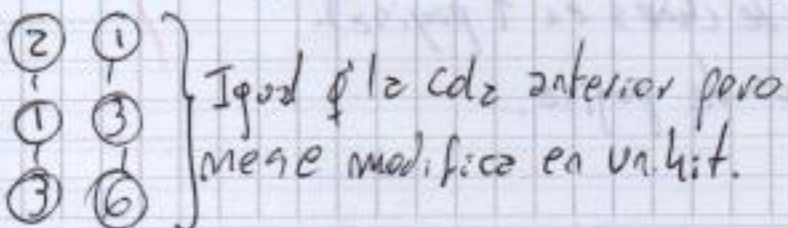 2 1
1 3
3 6
Igual q' la cola anterior pero
se modifica en un hit.